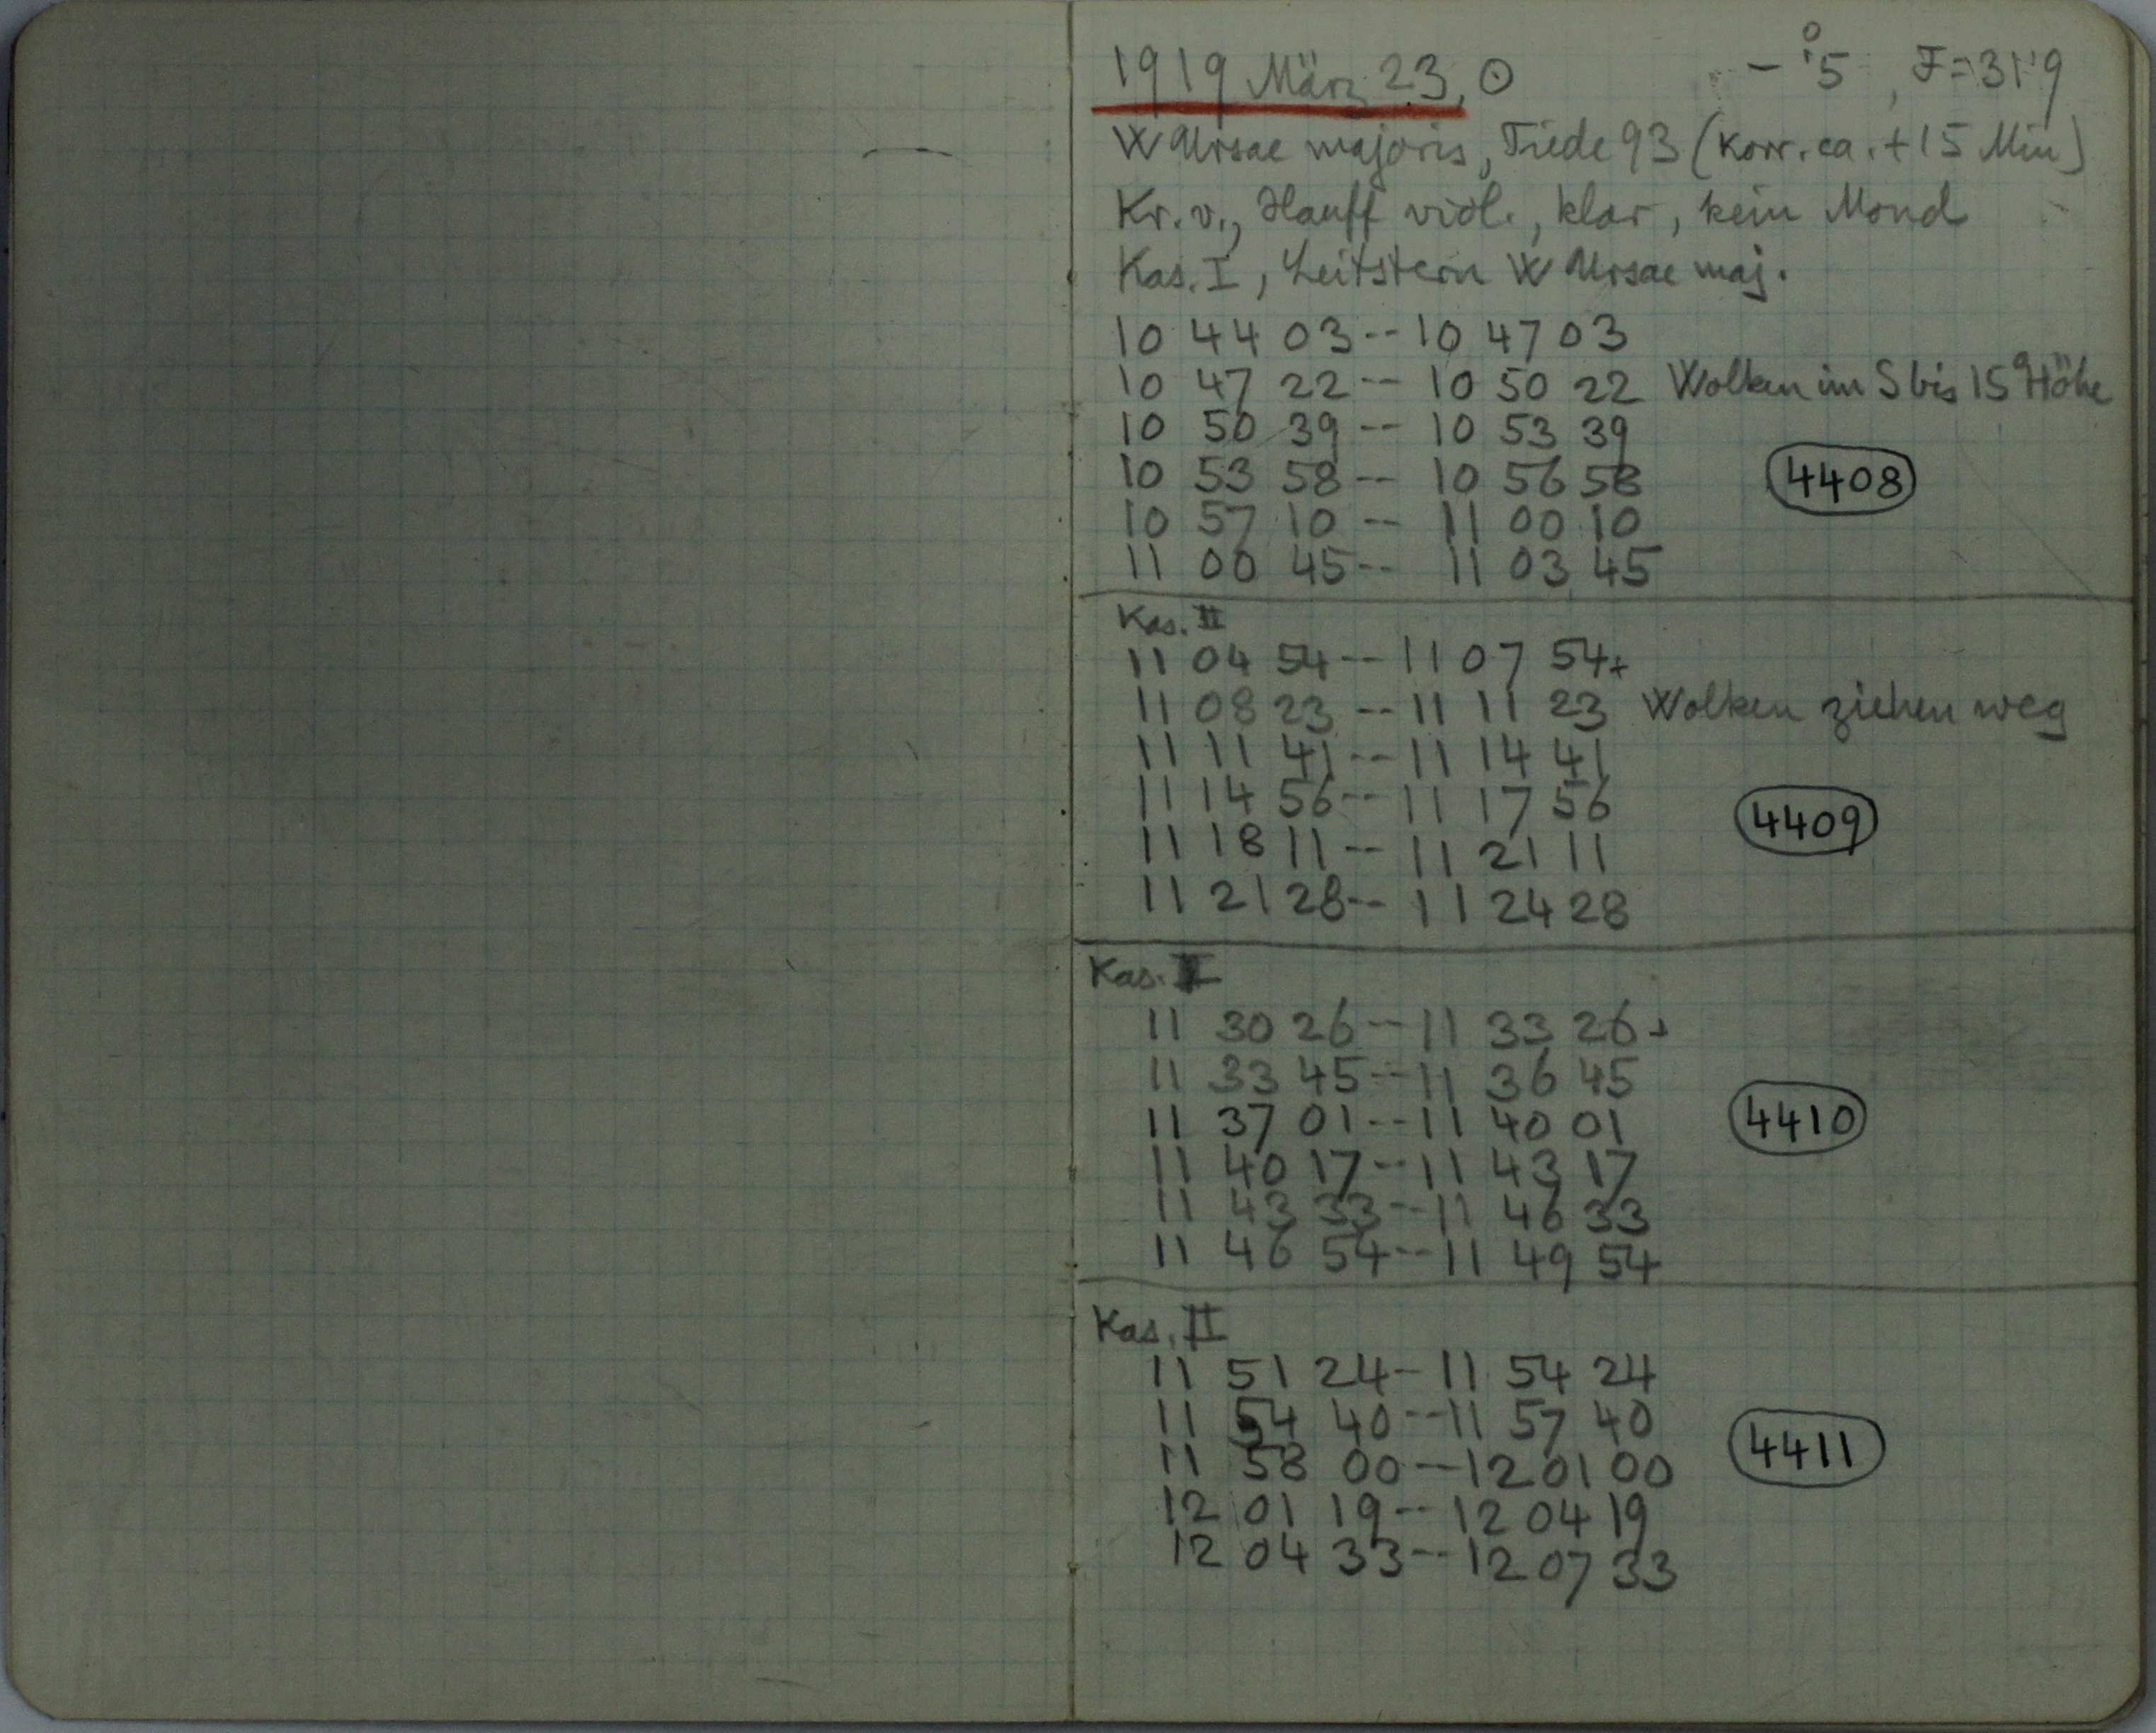 1919 März 23, ⊙ −°.5, F=31.9
W Ursae majoris, Tiede 93 (korr. ca. +15 Min)
Kr. v., Hauff viol., klar, kein Mond
Kas. I, Leitstern W Ursae maj.
10 44 03 -- 10 47 03
10 47 22 -- 10 50 22 Wolken im S bis 15° Höhe
10 50 39 -- 10 53 39
10 53 58 -- 10 56 58
4408
10 57 10 -- 11 00 10
11 00 45 -- 11 03 45
Kas. II
11 04 54 -- 11 07 54+
11 08 23 -- 11 11 23 Wolken ziehen weg
11 11 41 -- 11 14 41
11 14 56 -- 11 17 56
4409
11 18 11 -- 11 21 11
11 21 28 -- 11 24 28
Kas. I
11 30 26 -- 11 33 26+
11 33 45 -- 11 36 45
11 37 01 -- 11 40 01
4410
11 40 17 -- 11 43 17
11 43 33 -- 11 46 33
11 46 54 -- 11 49 54
Kas. II
11 51 24 - 11 54 24
11 54 40 -- 11 57 40
4411
11 58 00 -- 12 01 00
12 01 19 -- 12 04 19
12 04 33 -- 12 07 33